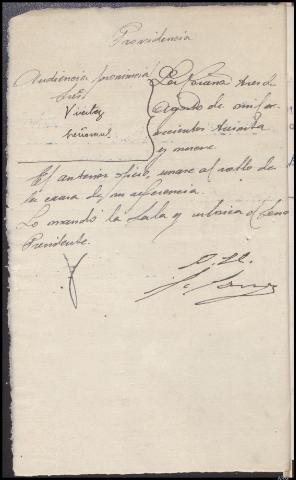 Providencia
Audiencia provincial
Sres.
La Coruña tres de
Agosto de mil no
vecientos treinta
y nueve.
El anterior oficio, unase al rollo de
la causa de su referencia.
Lo mandó la Sala y rubrica el Señor
Presidente.